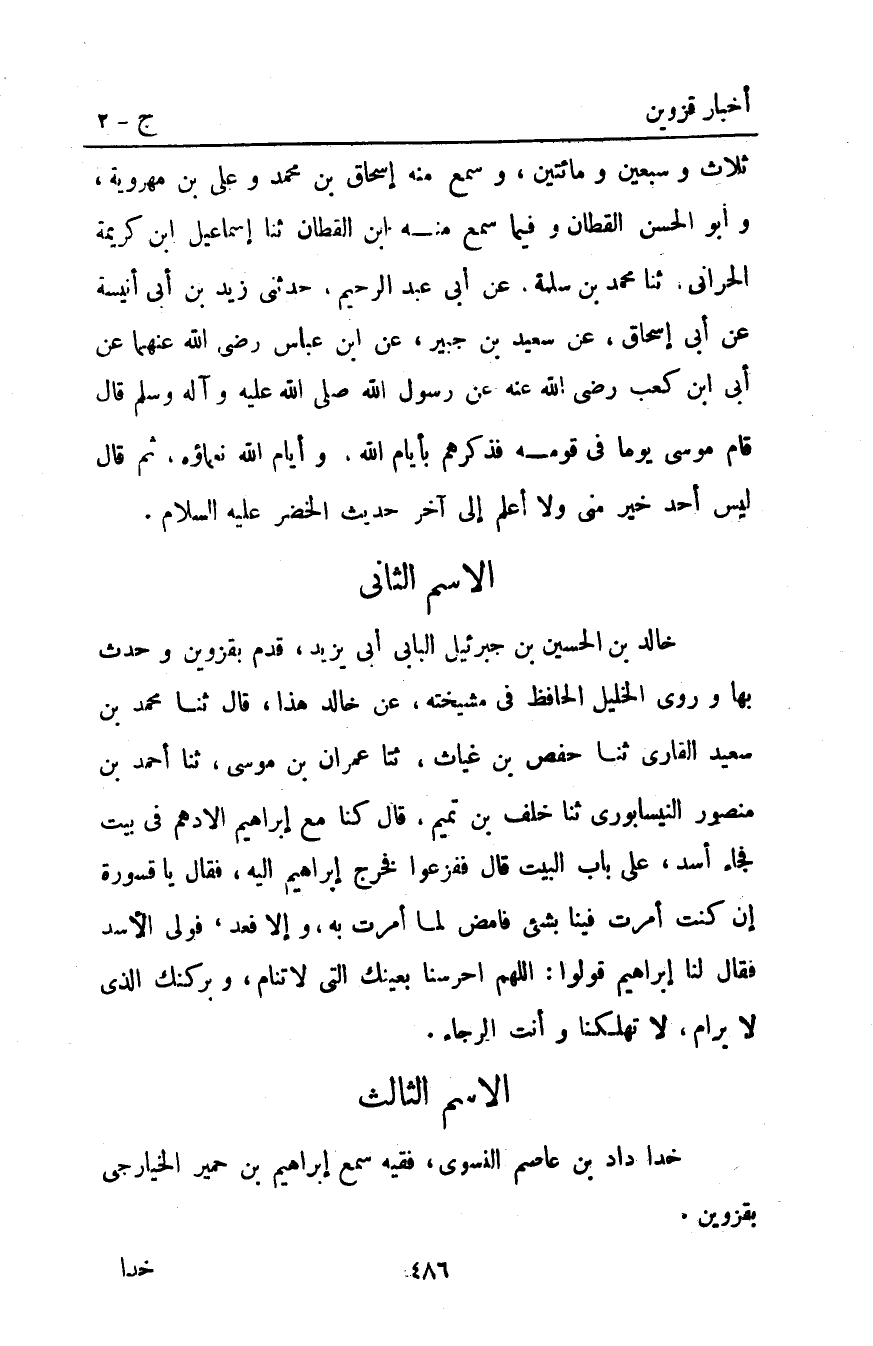 أخبار قزوين ج - ٢
ثلاث و سبعين و مائتين ، و سمع منه إسحاق بن محمد و على بن مهروية ،
و أبو الحسن القطان و فيما سمع منه ابن القطان ثنا إسماعيل ابن كريمة
الحرانى . ثنا محمد بن سلمة . عن أبى عبد الرحيم . حدثنى زيد بن أبى أنيسة
عن أبى إسحاق ، عن سعيد بن جبير ، عن ابن عباس رضى الله عنهما عن
أبى ابن كعب رضى الله عنه عن رسول الله صلى الله عليه و آله وسلم قال
قام موسى يوما فى قومه فذكرهم بأيام الله . و أيام الله نعماؤه . ثم قال
ليس أحد خير منى ولا أعلم إلى آخر حديث الخضر عليه السلام .
الاسم الثانى
خالد بن الحسين بن جبرئيل البابى أبى يزيد ، قدم بقزوين و حدث
بها و روى الخليل الحافظ فى مشيخته ، عن خالد هذا ، قال ثنا محمد بن
سعيد القارى ثنا حفص بن غياث ، ثنا عمران بن موسى ، ثنا أحمد بن
منصور النيسابورى ثنا خلف بن تميم . قال كنا مع إبراهيم الادهم فى بيت
فجاء أسد ، على باب البيت قال ففزعوا فخرج إبراهيم اليه ، فقال يا قسورة
إن كنت أمرت فينا بشئ فامض لما أمرت به ، و إلا فعد ، فولى الأسد
فقال لنا إبراهيم قولوا : اللهم احرسنا بعينك التى لاتنام ، و بركنك الذى
لا يرام ، لا تهلكنا و أنت الرجاء .
الاسم الثالث
خدا داد بن عاصم النسوى ، فقيه سمع إبراهيم بن حمير الخيارجى
بقزوين .
٤٨٦ خدا